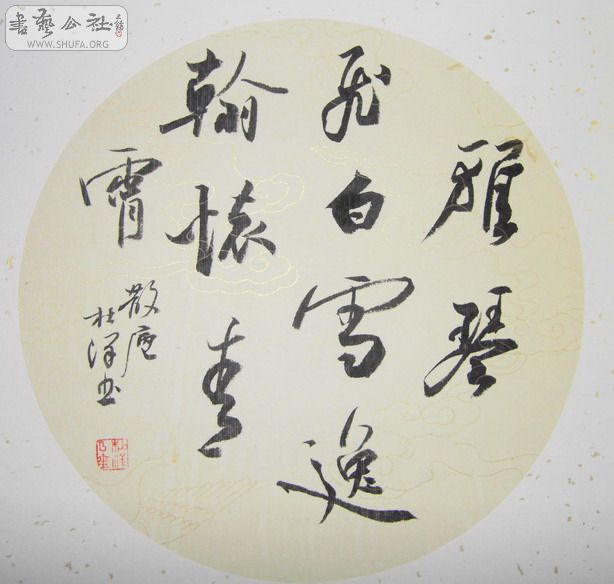 書藝公社
WWW.SHUFA.ORG
雅琴
飛白雪逸
翰懷青
霄
散庵
杜澤書